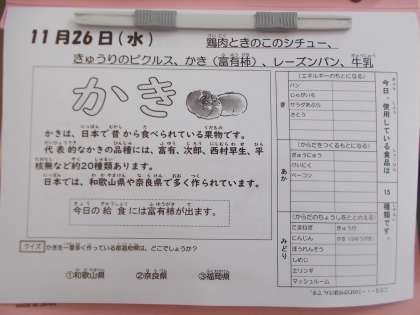 11月26日(水)
鶏肉ときのこのシチュー、
きゅうりのピクルス、かき(富有柿)、レーズンパン、牛乳
かき
かきは、日本で昔から食べられている果物です。
代表的なかきの品種には、富有、次郎、西村早生、平
核無など約20種類あります。
日本では、和歌山県や奈良県で多く作られています。
今日の給食には富有柿が出ます。
クイズ かきを一番多く作っている都道府県は、どこでしょうか?
①和歌山県 ②奈良県 ③福岡県
今日、使用している食品は 15 種類です。
き
(エネルギーのもとになる)
パン
じゃがいも
サラダあぶら
さとう
あか
(からだをつくるもとになる)
ぎゅうにゅう
けいにく
ベーコン
みどり
(からだのちょうしをととのえる)
たまねぎ きゅうり
にんじん かき(ふゆうがき)
ほうれんそう
しめじ
エリンギ
マッシュルーム